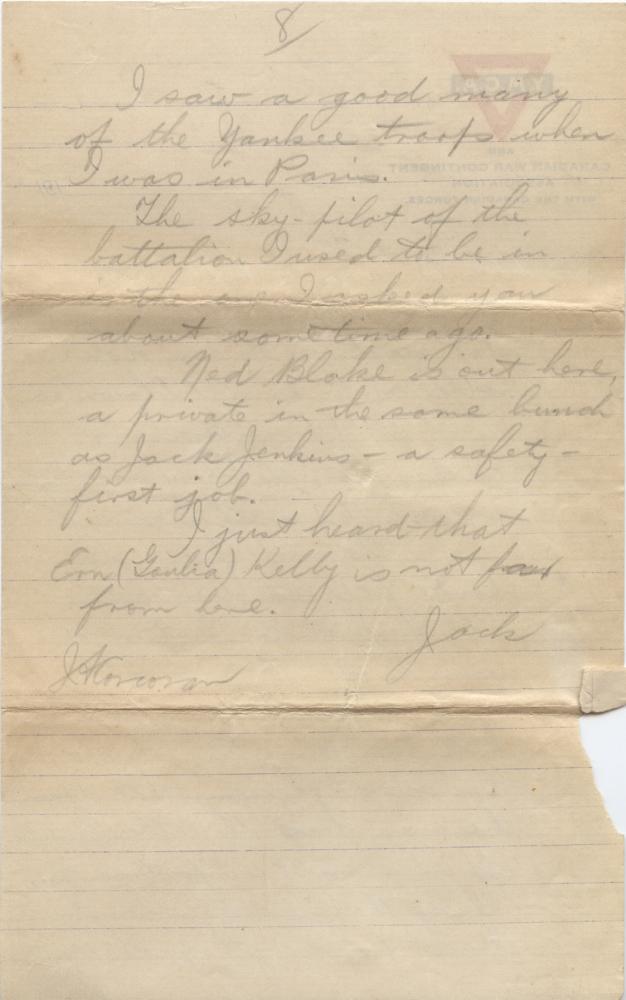 8/
I saw a good many
of the Yankee troops when
I was in Paris.
The sky-pilot of the
battalion I used to be in
is the one I asked you
about sometime ago.
Ned Blake is out here,
a private in the same bunch
as Jack Jenkins - a safety-
first job.
I just heard that
Ern () Kelly is not far
from here.
Jack
J Corcoran
YMCA
AND
CANADIAN WAR CONTINGENT
ASSOCIATION
WITH THE CANADIAN FORCES.